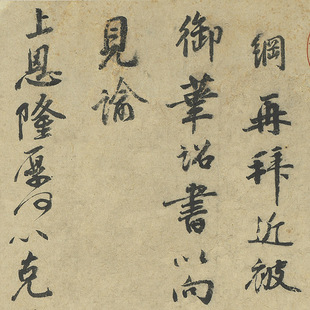 綱再拜近被
御筆詔書以尚
見諭
上恩隆厚何以克